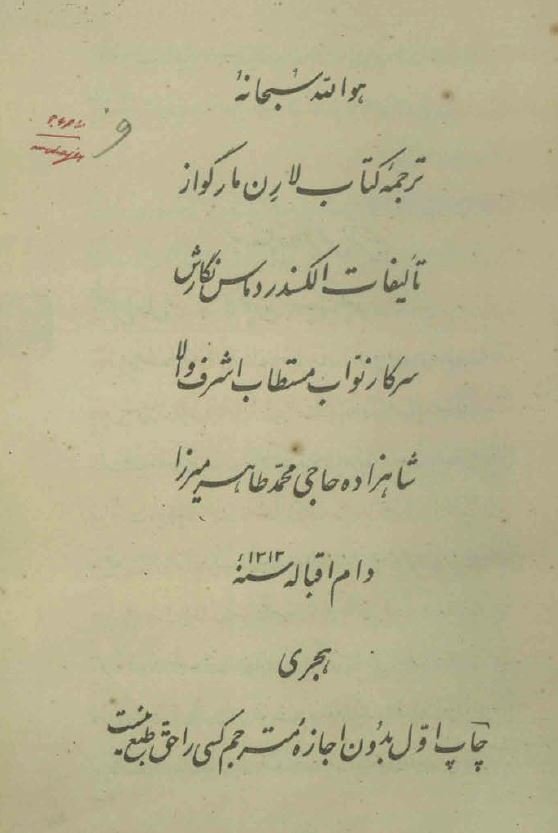 هوالله سبحانهٔ
ترجمهٔ کتاب لارن مارگواز
تألیفات الکندر دماس نگارش
سرکار نوّاب مستطاب اشرف والا
شاهزاده حاجی محمّد طاهر میرزا
دام اقباله سنهٔ ۱۳۱۳
هجری
چاپ اوّل بدون اجازه مُترجم کسی را حق طبع نیست